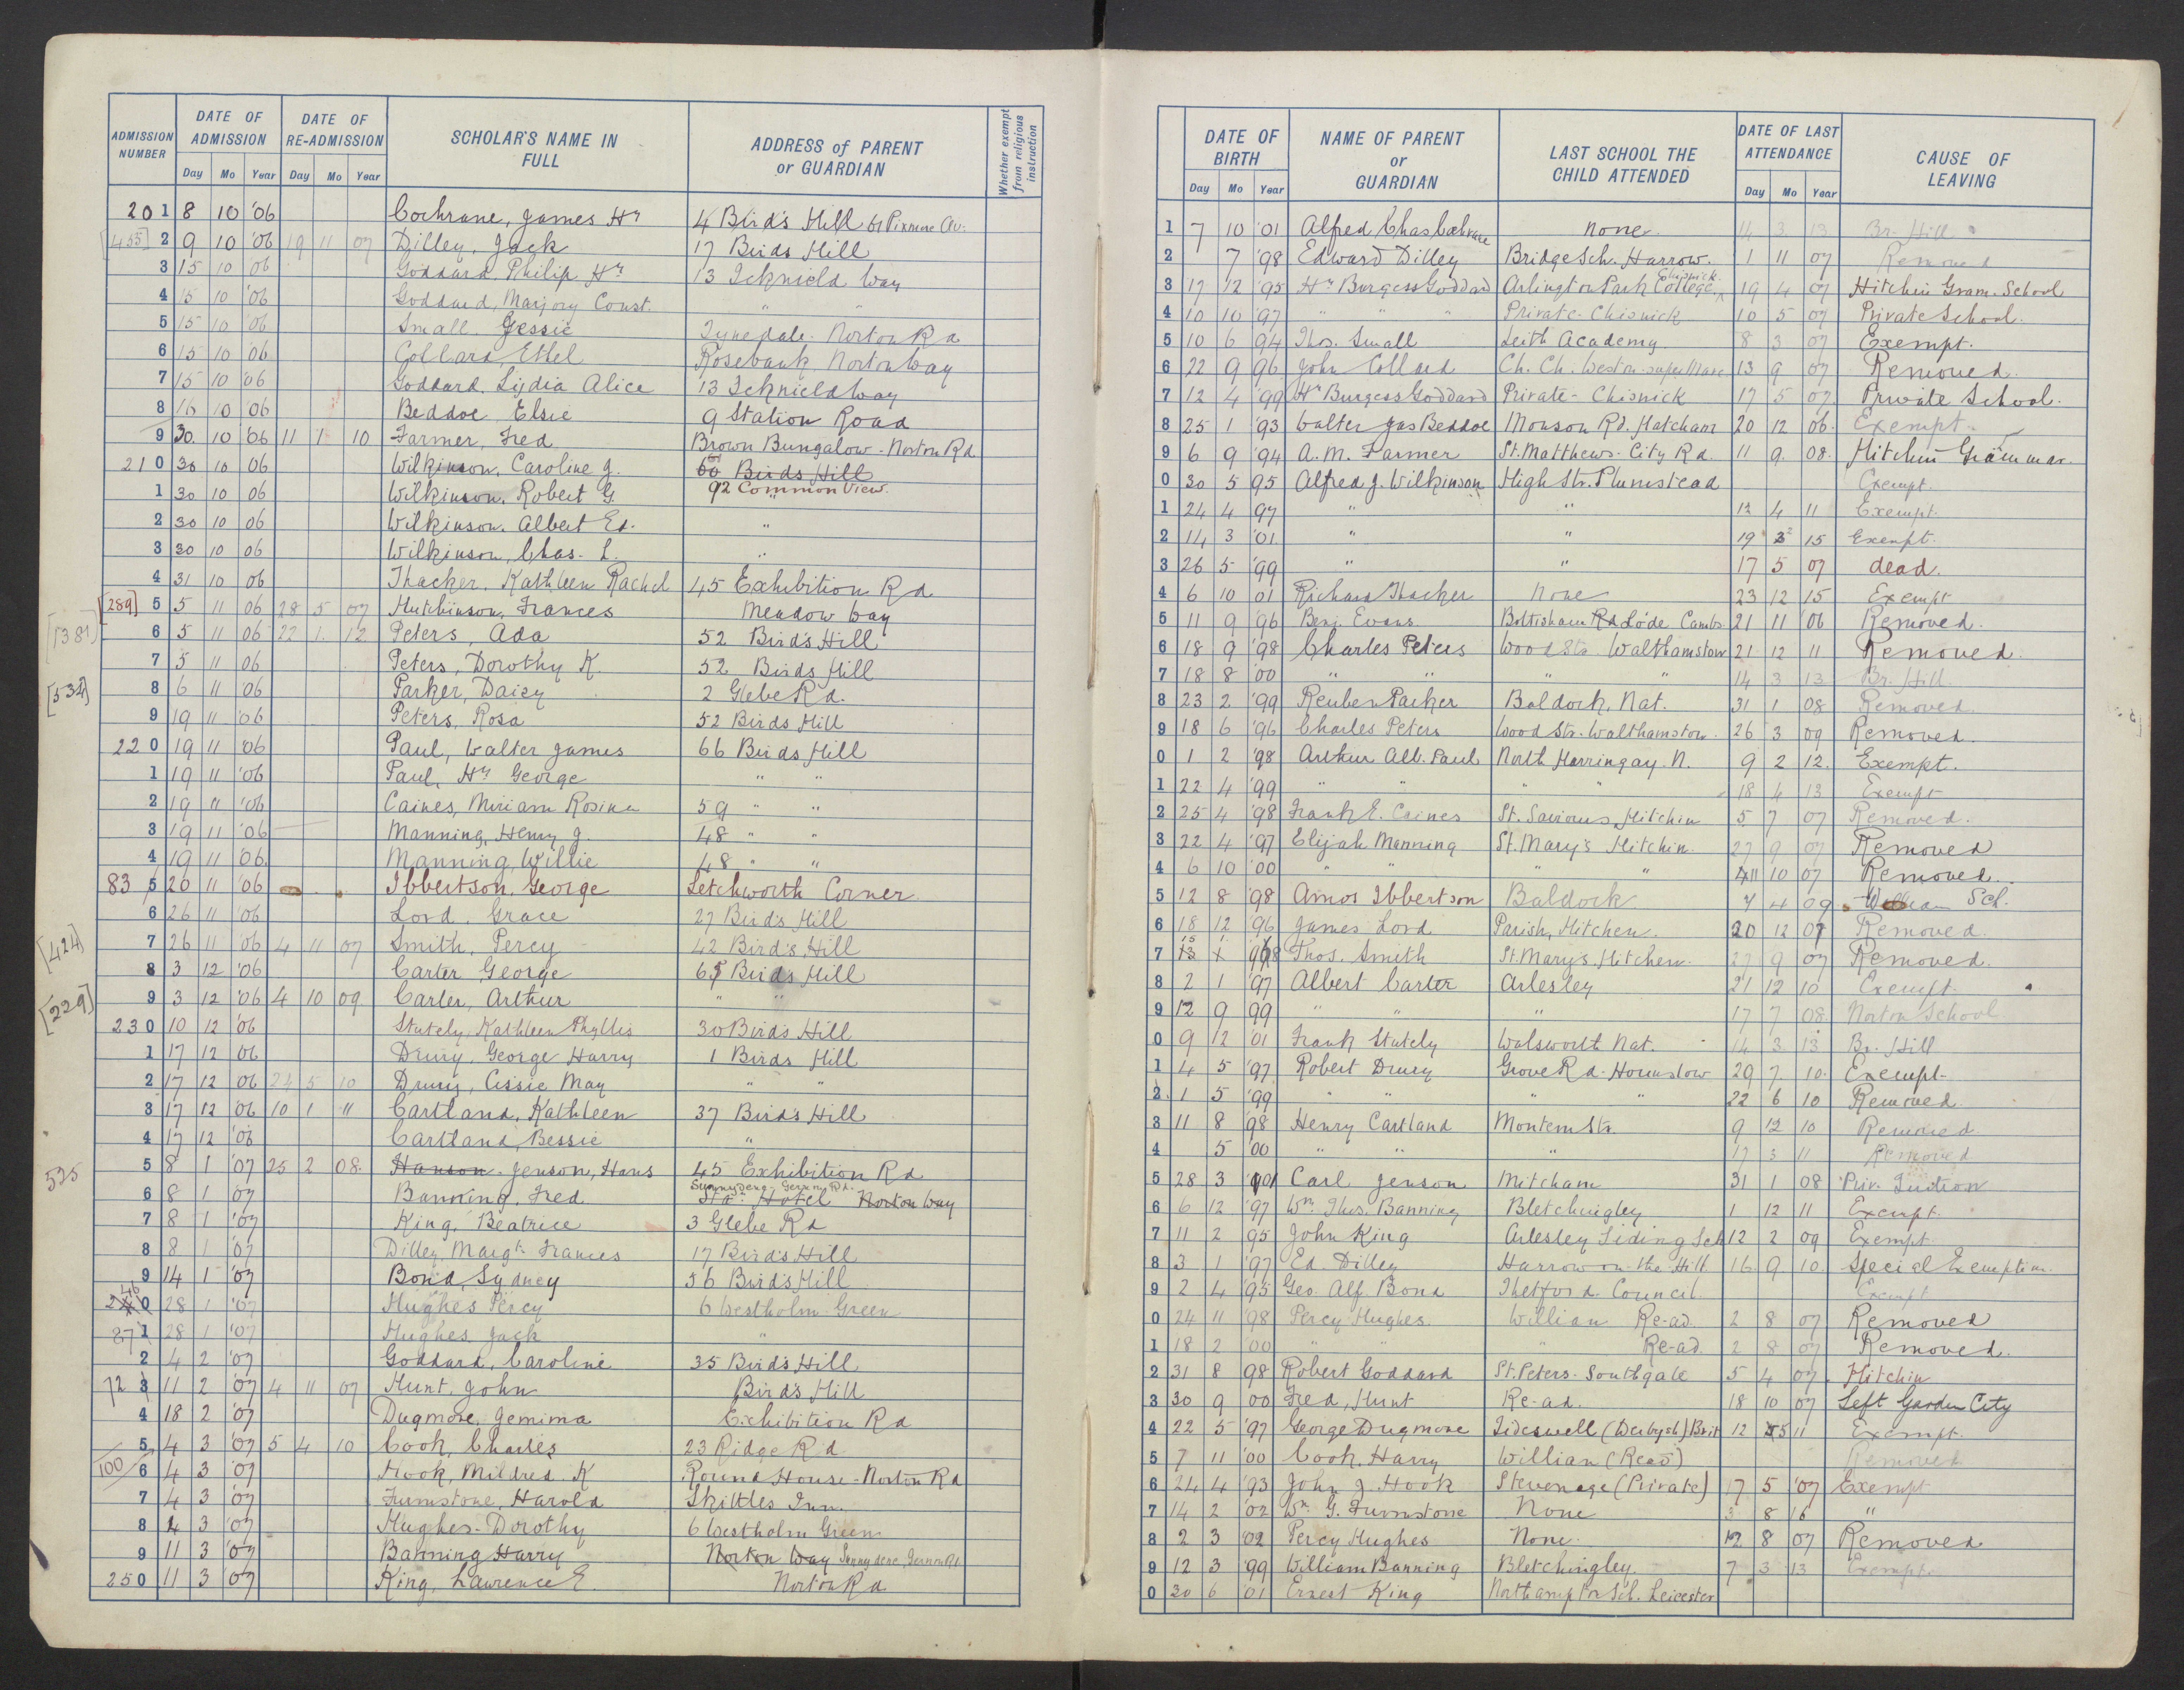 ADMISSION NUMBER | DATE OF ADMISSION Day Mo Year | DATE OF RE-ADMISSION Day Mo Year | SCHOLAR'S NAME IN FULL | ADDRESS of PARENT or GUARDIAN | Whether exempt from religious instruction
201 8 10 '06 Cochrane, James Hy 4 Bird's Hill 61 Pixmore Av.
[455] 2 9 10 '06 19 11 07 Dilley, Jack 17 Birds Hill
3 15 10 06 Goddard, Philip Hy 13 Icknield Way
4 15 10 '06 Goddard, Marjory Const. " "
5 15 10 '06 Small, Jessie Tynedale, Norton Rd
6 15 10 '06 Collard, Ethel Rosebank, Norton Way
7 15 10 '06 Goddard, Lydia Alice 13 Icknield Way
8 16 10 '06 Beddoe Elsie 9 Station Road
9 30 10 '06 11 1 10 Farmer, Fred Brown Bungalow - Norton Rd
210 30 10 06 Wilkinson, Caroline J. 60 Birds Hill
1 30 10 06 Wilkinson, Robert G. 92 Common View.
2 30 10 06 Wilkinson, Albert Ed. "
3 30 10 06 Wilkinson, Chas. L. "
4 31 10 06 Thacker, Kathleen Rachel 45 Exhibition Rd
[289] 5 5 11 06 28 5 07 Hutchinson, Frances Meadow Way
[381] 6 5 11 06 22 1 12 Peters, Ada 52 Bird's Hill
7 5 11 06 Peters, Dorothy K. 52 Birds Hill
[534] 8 6 11 06 Parker, Daisy 2 Glebe Rd.
9 19 11 '06 Peters, Rosa 52 Birds Hill
220 19 11 '06 Paul, Walter James 66 Birds Hill
1 19 11 '06 Paul, Hy George " "
2 19 11 '06 Caines, Miriam Rosina 59 " "
3 19 11 '06 Manning, Henry J. 48 " "
4 19 11 '06. Manning, Willie 48 " "
83 5 20 11 '06 Ibbertson, George Letchworth Corner
6 26 11 '06 Lord, Grace 27 Bird's Hill
[424] 7 26 11 '06 4 11 07 Smith, Percy 42 Bird's Hill
8 3 12 '06 Carter George 65 Birds Hill
[229] 9 3 12 '06 4 10 09 Carter, Arthur " "
230 10 12 '06 Stately, Kathleen Phyllis 30 Bird's Hill
1 17 12 06 Drury, George Harry 1 Birds Hill
2 17 12 06 24 5 10 Drury, Cissie May " "
3 17 12 '06 10 1 11 Cartland, Kathleen 37 Bird's Hill
4 17 12 '06 Cartland Bessie "
525 5 8 1 '07 25 2 08. Hanson. Jenson, Hans 45 Exhibition Rd
6 8 1 '07 Banning, Fred Sunnydene Gernon Rd. Sta. Hotel Norton Way
7 8 1 '07 King, Beatrice 3 Glebe Rd
8 8 1 '07 Dilley Margt. Frances 17 Bird's Hill
9 14 1 '07 Bond, Sydney 56 Bird's Hill
0 28 1 '07 Hughes Percy 6 Westholm Green
87 1 28 1 '07 Hughes Jack "
2 4 2 '07 Goddard, Caroline 35 Bird's Hill
72 3 11 2 '07 4 11 07 Hunt, John Bird's Hill
4 18 2 '07 Dugmore, Jemima Exhibition Rd
5 4 3 '07 5 4 10 Cook, Charles 23 Ridge Rd
100 6 4 3 '07 Hook, Mildred K Round House - Norton Rd
7 4 3 '07 Furmstone, Harold Skittles Inn.
8 4 3 '07 Hughes - Dorothy 6 Westholm Green
9 11 3 '07 Banning Harry Norton Way Sunnydene, Gernon Rd
250 11 3 '07 King, Lawrence E. Norton Rd
DATE OF BIRTH Day Mo Year | NAME OF PARENT or GUARDIAN | LAST SCHOOL THE CHILD ATTENDED | DATE OF LAST ATTENDANCE Day Mo Year | CAUSE OF LEAVING
1 7 10 '01 Alfred Chas Cochrane none. 14 3 13 Br. Hill
2 7 '98 Edward Dilley Bridge Sch. Harrow. 1 11 07 Removed
3 17 12 '95 Hy Burgess Goddard Arlington Park College, Chiswick 19 4 07 Hitchin Gram. School
4 10 10 '97 " " " Private - Chiswick 10 5 07 Private School.
5 10 6 94 Thos. Small Leith Academy. 8 3 07 Exempt.
6 22 9 96 John Collard Ch. Ch. Weston-super-Mare 13 9 07 Removed.
7 12 4 '99 Hy Burgess Goddard Private - Chiswick 17 5 07. Private School.
8 25 1 '93 Walter Jas Beddoe Monson Rd. Hatcham 20 12 06. Exempt.
9 6 9 '94 A. M. Farmer St. Matthews - City Rd. 11 9. 08. Hitchin Grammar
0 30 5 95 Alfred J. Wilkinson High Str. Plumstead Exempt.
1 24 4 97 " " 12 4 11 Exempt.
2 14 3 '01. " " 19 3 15 Exempt.
3 26 5 '99 " " 17 5 07 dead.
4 6 10 01 Richard Thacker None 23 12 15 Exempt
5 11 9 '96 Benj. Evans Bottisham Rd Lode Cambs. 21 11 '06 Removed.
6 18 9 '98 Charles Peters Wood Str. Walthamstow 21 12 11 Removed.
7 18 8 '00 " " " " 14 3 13 Br. Hill.
8 23 2 '99 Reuben Parker Baldock, Nat. 31 1 08 Removed
9 18 6 '96 Charles Peters Wood Str. Walthamstow. 26 3 09 Removed.
0 1 2 '98 Arthur Alb. Paul North Harringay. N. 9 2 12. Exempt.
1 22 4 '99 " " " " 18 4 13 Exempt
2 25 4 '98 Frank E. Caines St. Saviours, Hitchin 5 7 07 Removed.
3 22 4 '97 Elijah Manning St. Mary's Hitchin. 27 9 07 Removed
4 6 10 '00 " " " " 11 10 07 Removed.
5 12 8 '98 Amos Ibbertson Baldock 7 4 09 Willian Sch.
6 18 12 '96 James Lord Parish, Hitchin. 20 12 07 Removed.
7 15 1 98 Thos. Smith St. Mary's Hitchin. 27 9 07 Removed.
8 2 1 '97 Albert Carter Arlesley 21 12 10 Exempt.
9 12 9 99 " " " 17 7 08. Norton School.
0 9 12 '01 Frank Stately Walsworth Nat. 14 3 13 Br. Hill
1 4 5 '97 Robert Drury Grove Rd. Hounslow 29 7 10. Exempt.
2. 1 5 '99 " " " " 22 6 10 Removed.
3 11 8 '98 Henry Cartland Montem Str. 9 12 10 Removed
4 5 '00 " " " 17 3 11 Removed
5 28 3 '01 Carl Jenson Mitcham 31 1 08 Priv. Tuition
6 6 12 '97 Wm. Thos. Banning Bletchingley 1 12 11 Exempt.
7 11 2 95 John King Arlesley Siding Sch 12 2 09 Exempt
8 3 1 '97 Ed. Dilley Harrow-on-the-Hill 16. 9 10. Special Exemption.
9 2 4 '93 Geo. Alf. Bond Thetford. Council. Exempt
0 24 11 '98 Percy Hughes. Willian Re-ad. 2 8 07 Removed
1 18 2 '00 " " " Re-ad. 2 8 07 Removed.
2 31 8 98 Robert Goddard St. Peters - Southgate 5 4 07. Hitchin
3 30 9 '00 Fred, Hunt Re-ad. 18 10 07 Left Garden City
4 22 5 '97 George Dugmore Tideswell (Derbysh) Brit 12 5 11 Exempt.
5 7 11 '00 Cook, Harry Willian (Read) Removed
6 24 4 '93 John J. Hook Stevenage (Private) 17 5 '07 Exempt
7 14 2 '02 Wm. G. Furmstone None 3 8 16 "
8 2 3 '02 Percy Hughes None. 12 8 07 Removed
9 12 3 '99 William Banning Bletchingley. 7 3 13 Exempt.
0 30 6 '01 Ernest King Northampton Sch. Leicester